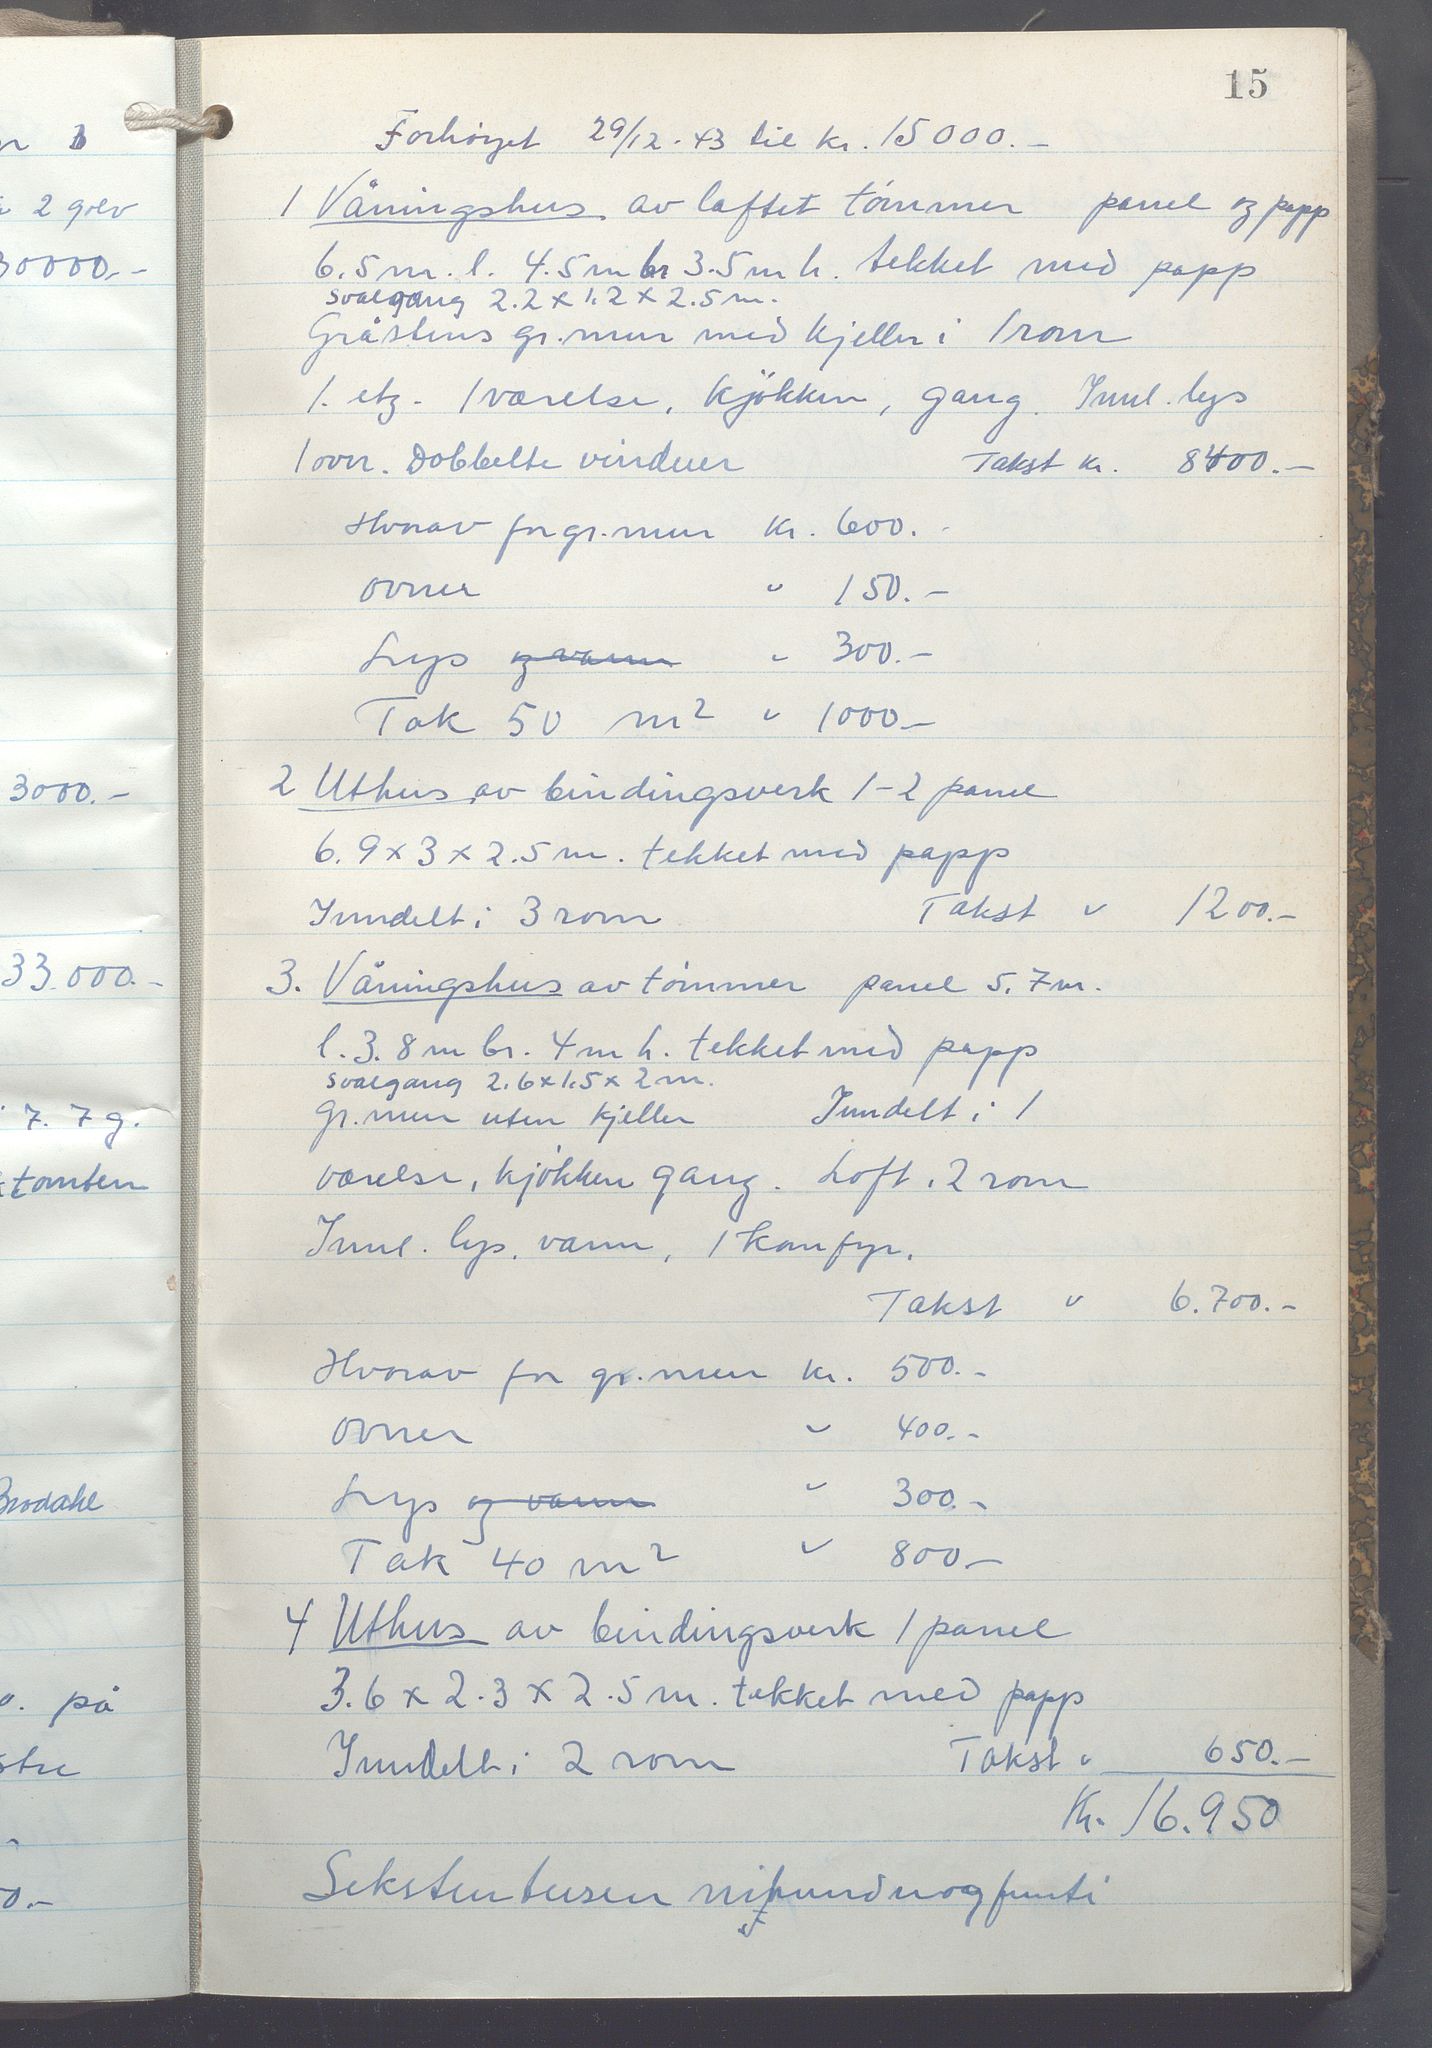 15
Forhöyet 29/12-43 til kr. 15000.-
1 Våningshus av laftet tömmer panel og papp
6.5 m. l. 4.5 m br 3.5 m h. tekket med papp
svalgang 2.2 x 1.2 x 2.5 m.
Gråstens gr.mur med kjeller i 1 rom
1. etg. 1 værelse, kjökken, gang. Innl. lys
1 ovn. Dobbelte vinduer Takst kr. 8400.-
Hvorav for gr.mur kr. 600.-
ovner " 150.-
Lys og vann " 300.-
Tak 50 m² " 1000.-
2 Uthus av bindingsverk 1-2 panel
6.9 x 3 x 2.5 m. tekket med papp
Inndelt i 3 rom Takst " 1200.-
3. Våningshus av tömmer panel 5.7 m.
l. 3.8 m br. 4 m h. tekket med papp
svalgang 2.6 x 1.5 x 2 m.
Gr.mur uten kjeller Inndelt i 1
værelse, kjökken gang. Loft. 2 rom
Innl. lys. vann, 1 komfyr.
Takst " 6.700.-
Hvorav for gr.mur kr. 500.-
Ovner " 400.-
Lys og vann " 300.-
Tak 40 m² " 800.-
4 Uthus av bindingsverk 1 panel
3.6 x 2.3 x 2.5 m. tekket med papp
Inndelt i 2 rom Takst " 650.-
Kr. 16.950
Sekstentusen nihundreogfemti
2 golv
30000.-
3000.-
33.000.-
7. 7 g.
tomten
Brodahl
på
0.-